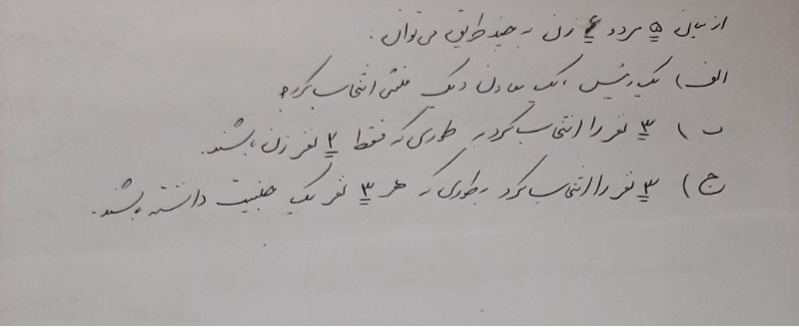 از بین ۵ مرد و ۶ زن به چند طریق می‌توان:
الف) یک رئیس، یک معاون و یک منشی انتخاب کرد؟
ب) ۳ نفر را انتخاب کرد به طوری که فقط ۲ نفر زن باشند.
ج) ۳ نفر را انتخاب کرد بطوری که هر ۳ نفر یک جنسیت داشته باشند.